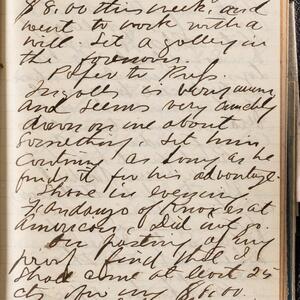 $8.00 this week and
went to work with a
will. Set a galley in
the forenoon.
Paper to Press.
Ingalls is very 
and seems very much
down on me about
something. Let him,
 as long as he
finds it for his advantage.
Shave in evening.
Fandango of Knoxes at
American, I did not go.
On pasting up my
proof find that I
shall come at least 25
cts for my $8.00.